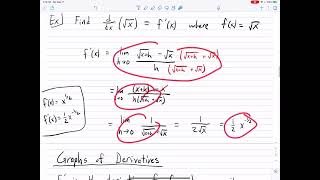 Ex) Find d/dx (√x) = f'(x) where f(x) = √x
f'(x) = lim h→0 √x+h - √x / h (√x+h + √x) / (√x+h + √x)
= lim h→0 (x+h) - x / h(√x+h + √x)
f(x) = x^1/2
f'(x) = 1/2 x^-1/2
= lim h→0 1 / √x+h + √x = 1 / 2√x = 1/2 x^-1/2
Graphs of Derivatives